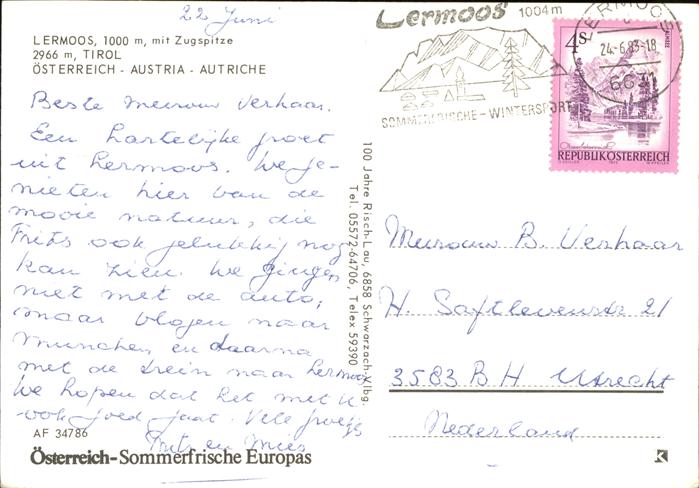 22 Juni
LERMOOS, 1000 m, mit Zugspitze
2966 m, TIROL
ÖSTERREICH - AUSTRIA - AUTRICHE
Beste Mevrouw Verhaar.
Een hartelijke groet
uit Lermoos. We ge-
nieten hier van de
mooie natuur, die
Frits ook gelukkig nog
kan zien. We gingen
niet met de auto,
maar vlogen naar
Munchen en daarna
met de trein naar Lermoos
We hopen dat het met U.
ook goed gaat. Vele groetjes
Frits en Mies
AF 34786
Österreich-Sommerfrische Europas
100 Jahre Risch-Lau, 6858 Schwarzach-Vlbg.
Tel. 05572-64706, Telex 59390
Lermoos 1004m
SOMMERFRISCHE-WINTERSPORT
LERMOOS
24.-6.83-18
6631
4 S
REPUBLIK ÖSTERREICH
Mevrouw B. Verhaar
H. Saftlevenstr 21
3583 BH Utrecht
Nederland